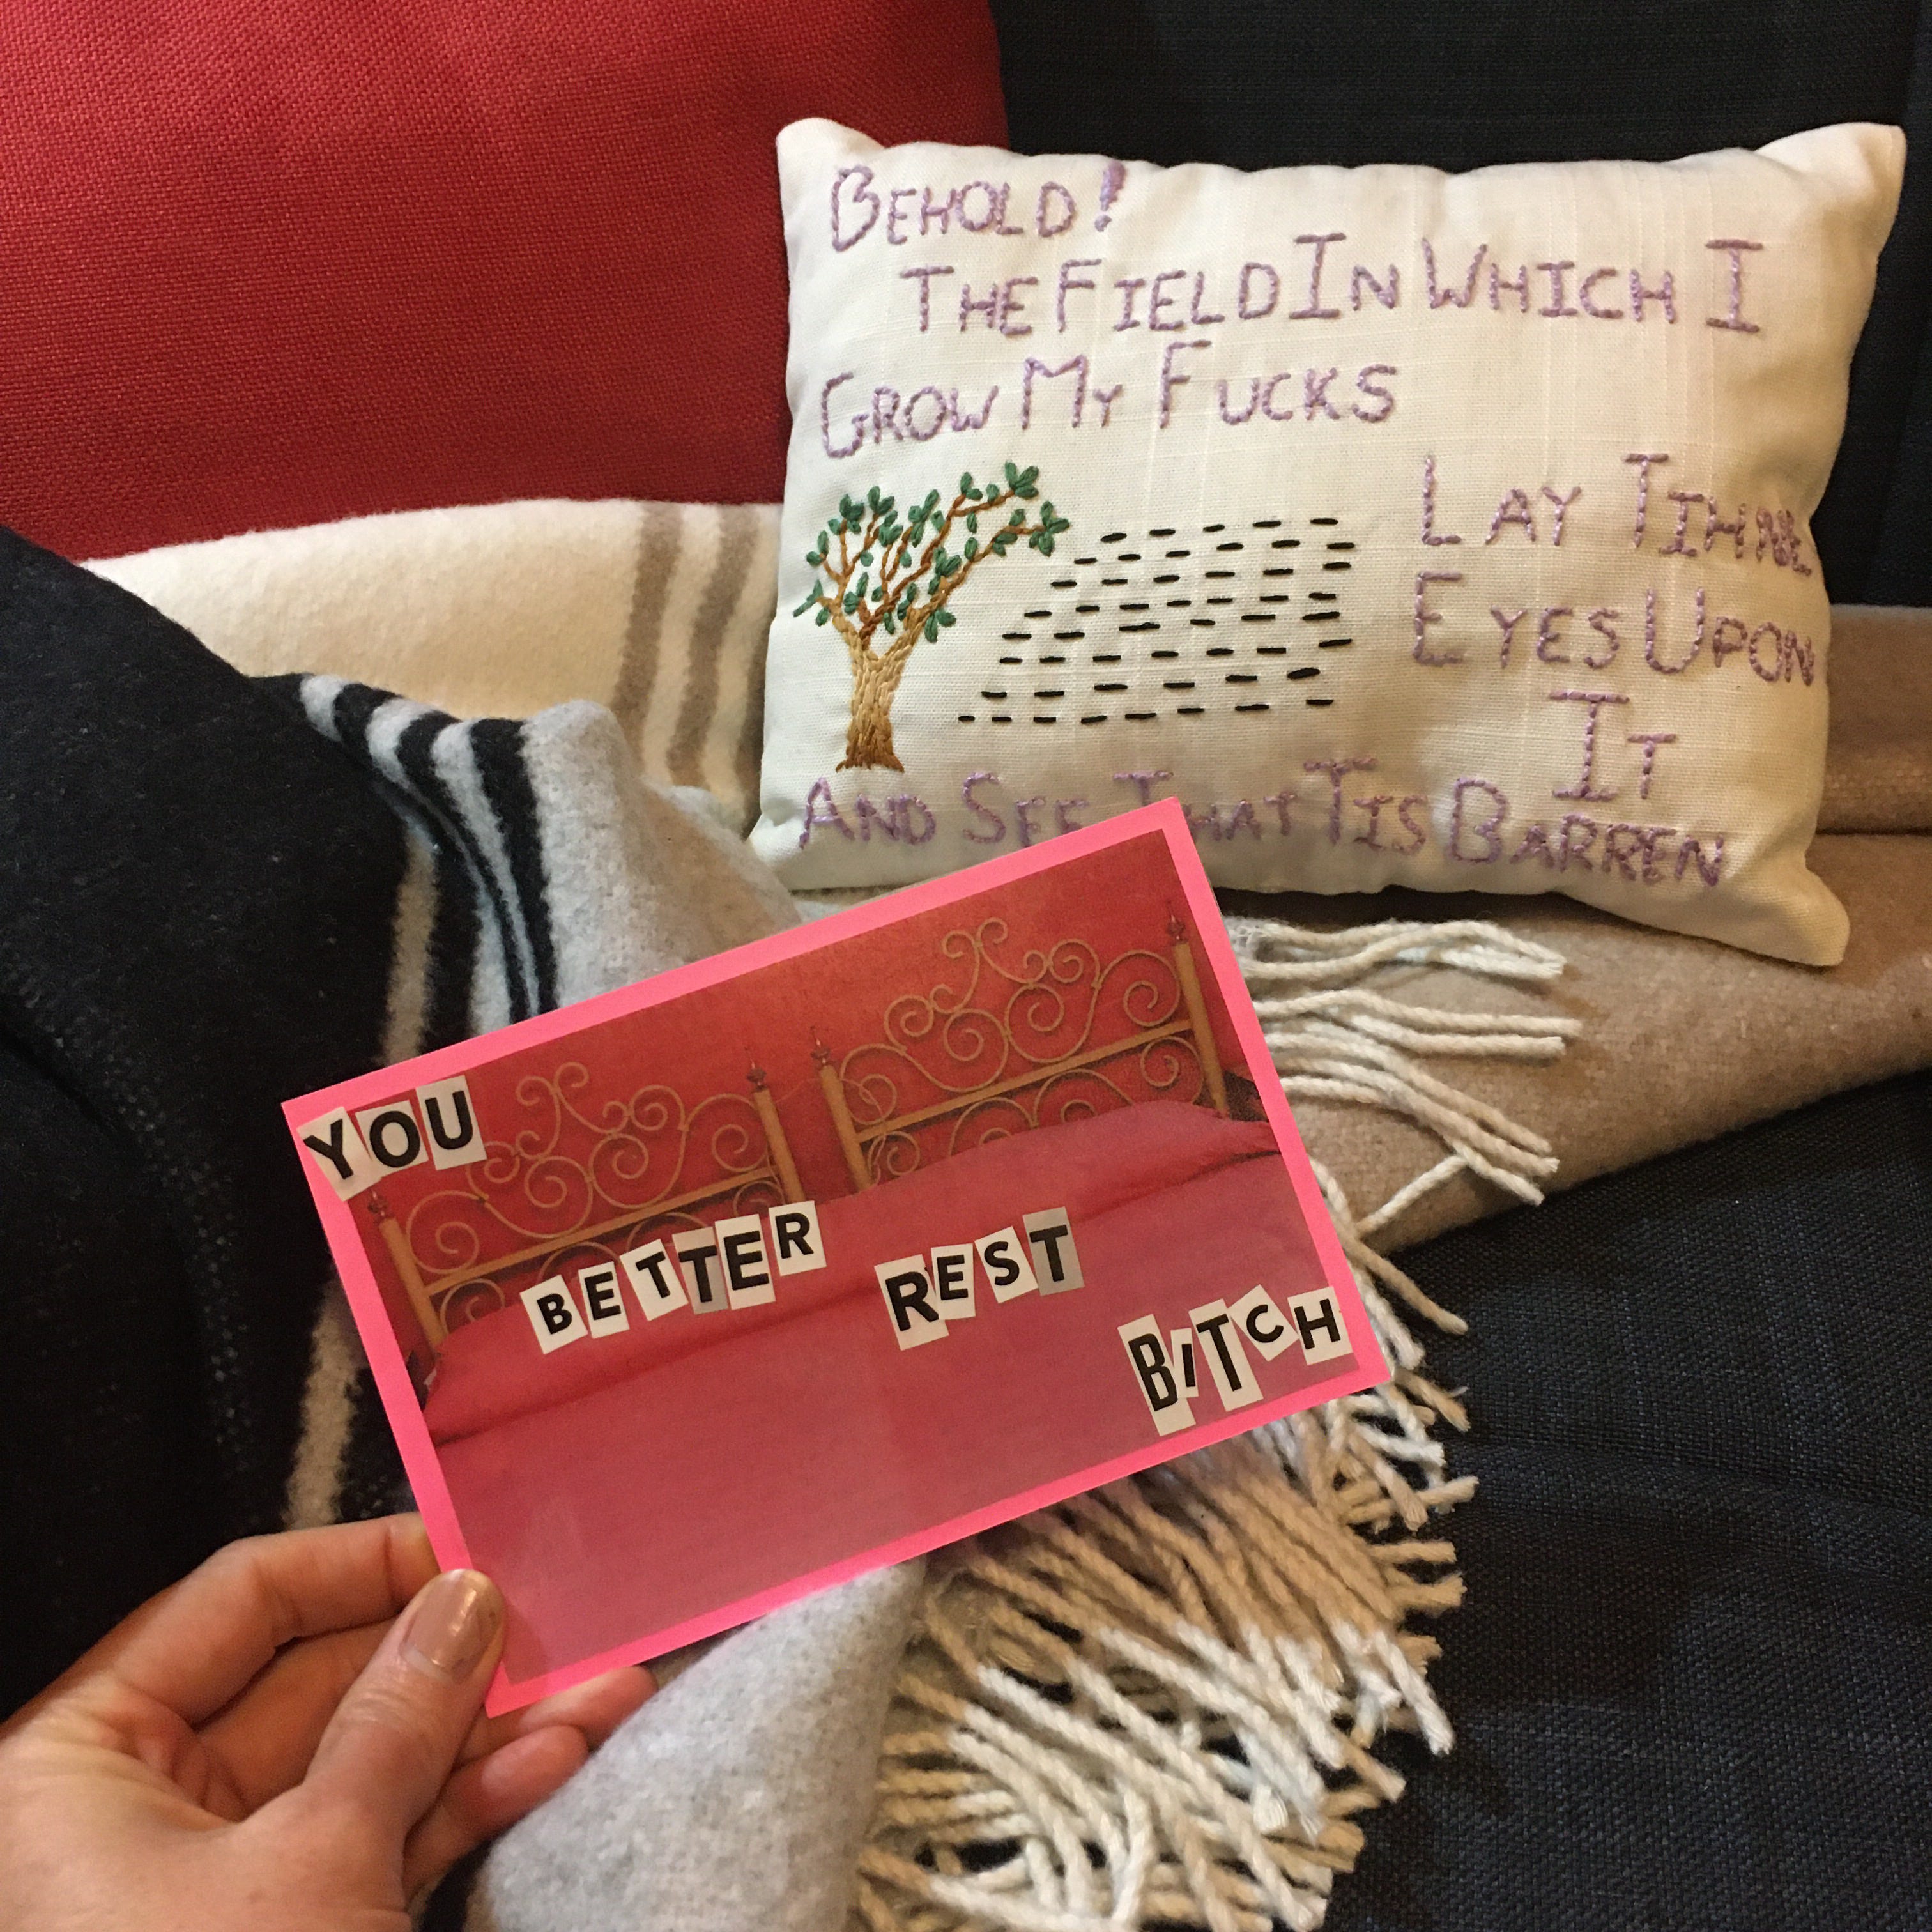 BEHOLD!
THE FIELD IN WHICH I
GROW MY FUCKS
LAY THINE
EYES UPON
IT
AND SEE THAT TIS BARREN
YOU
BETTER REST
BITCH